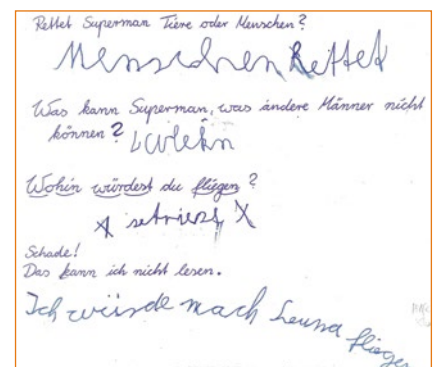 Rettet Superman Tiere oder Menschen?
Menschen Rettet
Was kann Superman, was andere Männer nicht
können?
Wohin würdest du fliegen?
X X
Schade!
Das kann ich nicht lesen.
Ich würde nach fliegen